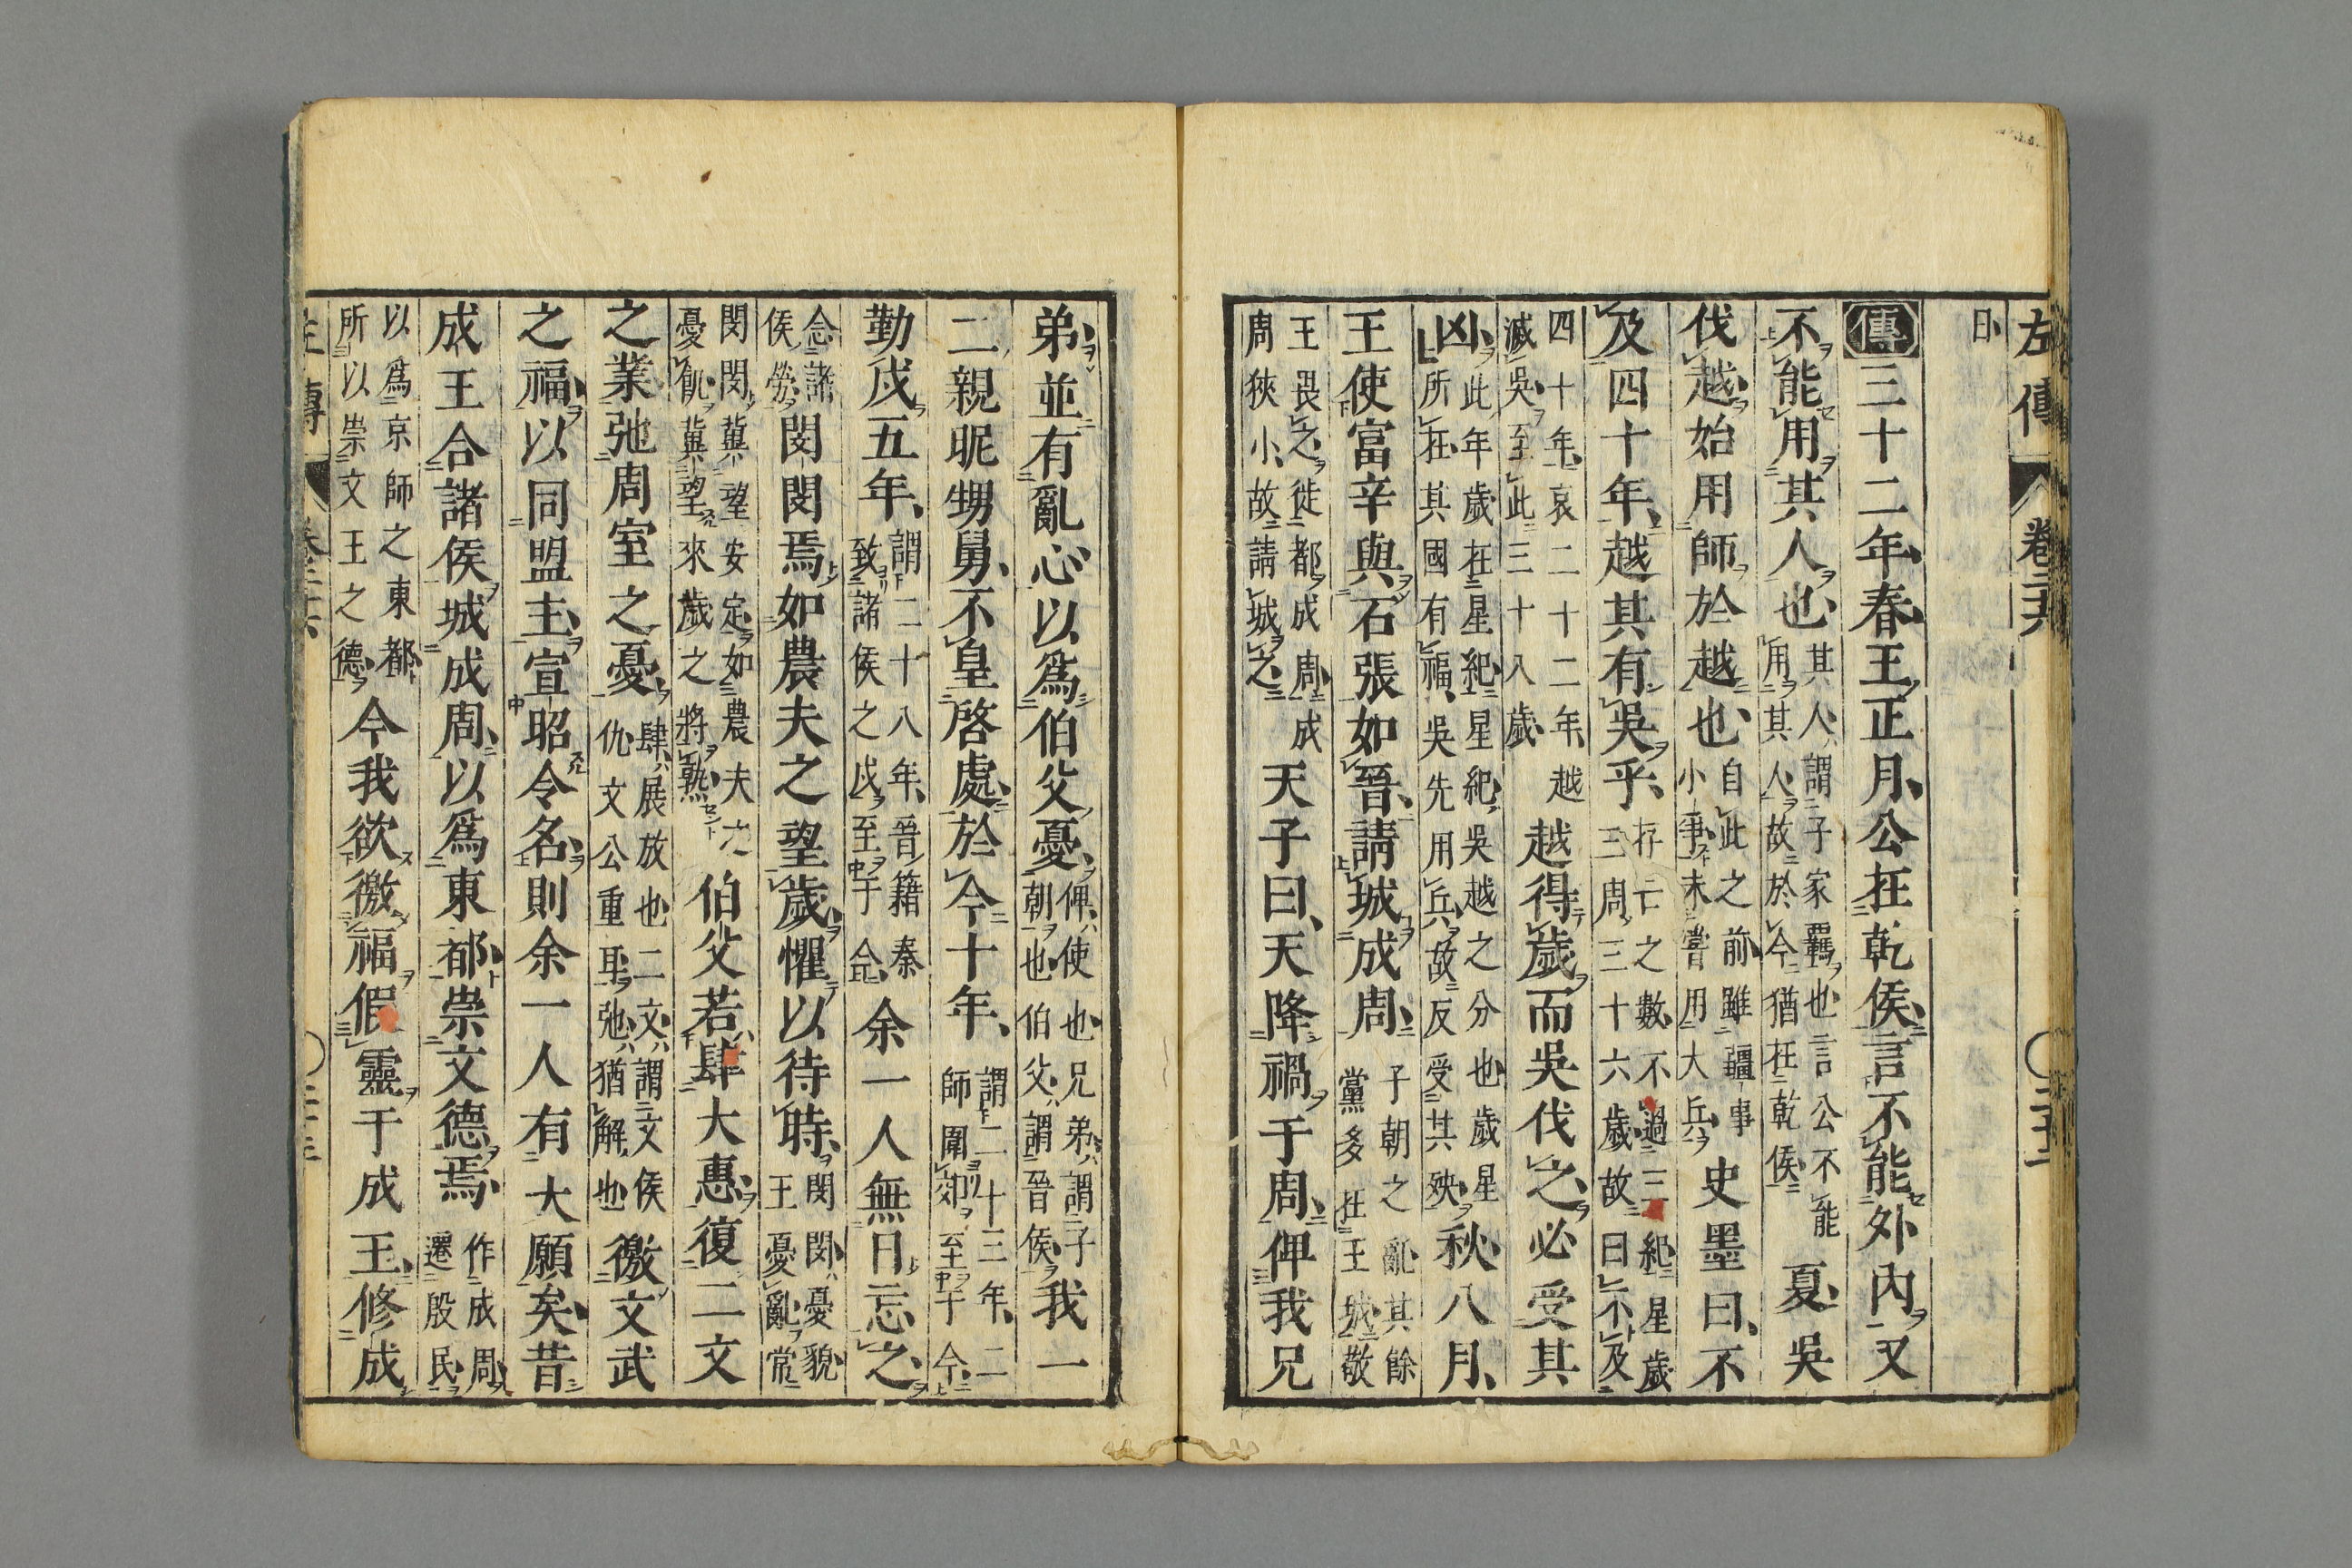 左傳 卷二十六
日
傳三十二年春王正月公在乾侯言不能外内又
不能用其人也其人謂子家羈也言公不能用其人故於今猶在乾侯夏吳
伐越始用師於越也自此之前雖疆事小爭未嘗用大兵史墨曰不
及四十年越其有吳乎存亡之數不過三紀星歲三周三十六歲故曰不及
四十年哀二十二年越滅吳至此三十八歲越得歲而吳伐之必受其
凶此年歲在星紀星紀吳越之分也歲星所在其國有福吳先用兵故反受其殃秋八月
王使富辛與石張如晉請城成周子朝之亂其餘黨多在王城敬
王畏之徙都成周成周狹小故請城之天子曰天降禍于周俾我兄
弟並有亂心以爲伯父憂俾使也兄弟謂子朝也伯父謂晉侯我一
二親昵甥舅不皇啓處於今十年謂二十三年二師圍郊至于今
勤戍五年謂二十八年晉籍秦致諸侯之戍至于今余一人無日忘之
念諸侯勞閔閔焉如農夫之望歲懼以待時閔閔憂貌王憂亂常
閔閔冀望安定如農夫之憂飢冀望來歲之將熟伯父若肆大惠復二文
之業弛周室之憂肆展放也二文謂文侯仇文公重耳弛猶解也徼文武
之福以同盟主宣昭令名則余一人有大願矣昔
成王合諸侯城成周以爲東都崇文德焉作成周遷殷民
以爲京師之東都所以崇文王之德今我欲徼福假靈于成王修成